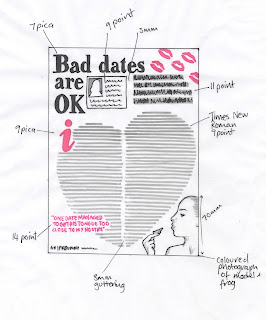 7 pica
9 point
3mm
Bad dates
are
OK
11 point
i
Times New
Roman
9 point
9 pica
70mm
"ONE DATE MANAGED
TO GET HIS TONGUE TOO
CLOSE TO MY NOSTRIL"
14 point
8mm
guttering
Coloured
photograph
of model &
frog